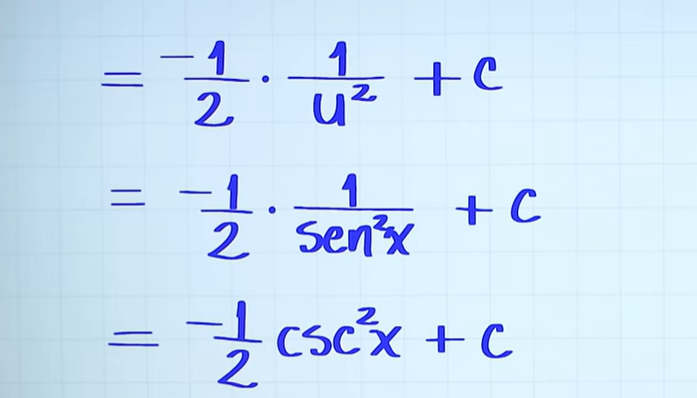 = -1/2 · 1/u² + c
= -1/2 · 1/sen²x + c
= -1/2 csc²x + c